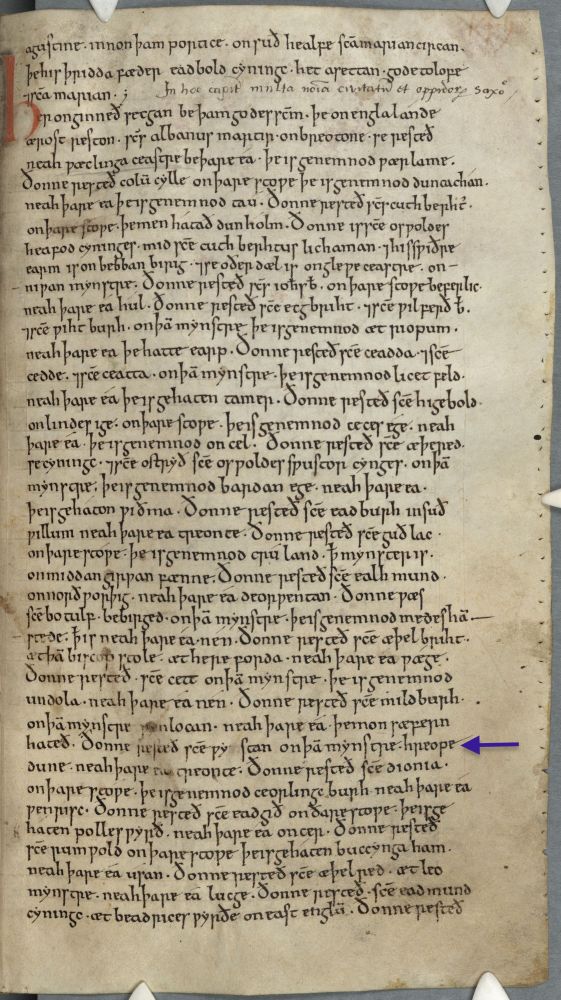 agustine · innon þam portice · on suð healfe sc̄a marian circan ·
þe his þridda fæder eadbold cyningc · het arettan · gode to lofe
⁊ sc̄a marian · ; In hoc capit̄ multa noīa civitatū et oppidorꝫ saxoꝰ
Her onginneð secgan be þam godes sc̄m · þe on engla lande
ærost reston · sc̄s albanus martir · on breotone · se resteð
neah ƿæclinga ceastre be þare ea · þe is genemnod ƿærlame ·
Ðonne resteð colū cylle on þare stope þe is genemnod duncachan ·
neah þare ea þe is genemnod tau · Ðonne resteð sc̄s cuthberht ·
on þare stoƿe · þe men hatað dunholm · Ðonne is sc̄e osƿoldes
heafod cyninges · mid sc̄e cuthberhtus lichaman · ⁊ his sƿiðre
earm is on bebban birig · ⁊ se oðer dæl is on gleƿe ceastre · on
niƿan mynstre · Ðonne resteð sc̄s ioh̄s b̄ · on þare stoƿe beferlic ·
neah þare ea hul · Ðonne resteð sc̄e ecgbriht · ⁊ sc̄e ƿilferð b̄ ·
⁊ sc̄e ƿihtburh · on þā mynstre þe is genemnod æt riopum ·
neah þare ea þe hatte earp · Ðonne resteð sc̄e ceadda · ⁊ sc̄e
cedde · ⁊ sc̄e ceatta · on þā mynstre · þe is genemnod licetfeld ·
neah þare ea þe is gehaten tamer · Ðonne resteð sc̄e higebold ·
on lindesige · on þare stoƿe · þe is genemnod cecesege · neah
þare ea · þe is genemnod oncel · Ðonne resteð sc̄e æþered ·
se cyningc · ⁊ sc̄e ostryð sc̄e osƿoldes sƿustor cynges · on þā
mynstre · þe is genemnod bardan ege · neah þare ea ·
þe is gehaton ƿiðma · Ðonne resteð sc̄e eadburh in suð
ƿillum neah þare ea treonte · Ðonne resteð sc̄e guðlac ·
on þare stoƿe · þe is genemnod cruland · þ̄ mynster is ·
on middan girƿan fænne · Ðonne resteð sc̄e ealhmund ·
on norðƿorþig · neah þare ea deorƿentan · Ðonne ƿæs
sc̄e botulf · bebirged · on þā mynstre · þe is genemnod medeshā
stede · þis neah þare ea · nén · Ðonne resteð sc̄e æþelbriht ·
æt þā biscopstole · æt hereforda · neah þare ea ƿæge ·
Ðonne resteð · sc̄e cett on þā mynstre · þe is genemnod
undola · neah þare ea nén · Ðonne resteð sc̄e mildburh ·
on þā mynstre ƿenlocan · neah þare ea · þe mon sæfern
hateð · Ðonne resteð sc̄e ƿystan on þā mynstre · hreope
dune · neah þare ea treonte · Ðonne resteð sc̄e dionia ·
on þare stoƿe · þe is genemnod ceorlingc burh neah þare ea
ƿenrisc · Ðonne resteð sc̄e eadgið on ðare stoƿe · þe is ge
haten pollesƿyrð · neah þare ea oncer · Ðonne resteð
sc̄e rumƿold on þare stoƿe þe is gehaten buccyngaham ·
neah þare ea usan · Ðonne resteð sc̄e æþelred · æt leo
mynstre · neah þare ea lucge · Ðonne resteð · sc̄e eadmund
cyningc · æt beadricesƿyrðe on east englū · Ðonne resteð